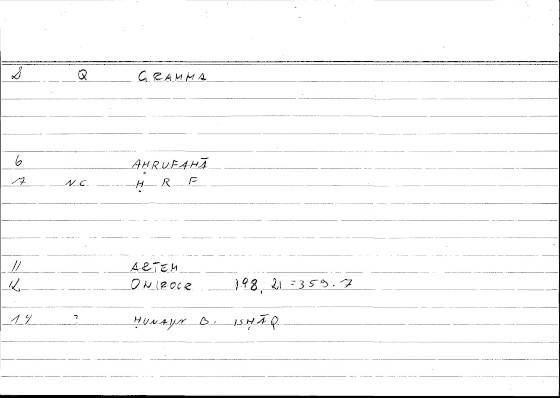 S Q GRAMMA
6 AḤRUFAHĀ
7 N.C. Ḥ R F
11 ARTEM
12 ONIROCR 198, 21 = 359.7
14 ? ḤUNAYN B. ISḤĀQ